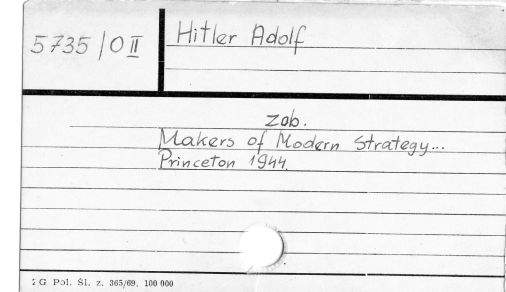 5735/O II
Hitler Adolf
zob.
Makers of Modern Strategy...
Princeton 1944.
G Pol. Śl. z. 365/69, 100 000